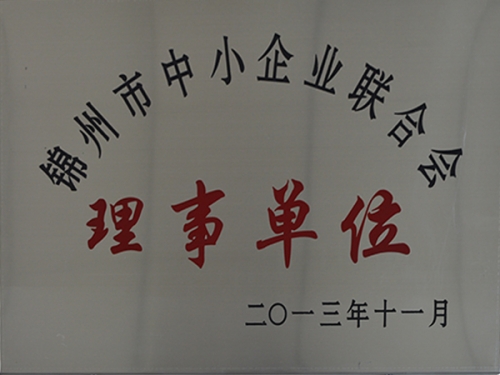 锦州市中小企业联合会
理事单位
二〇一三年十一月